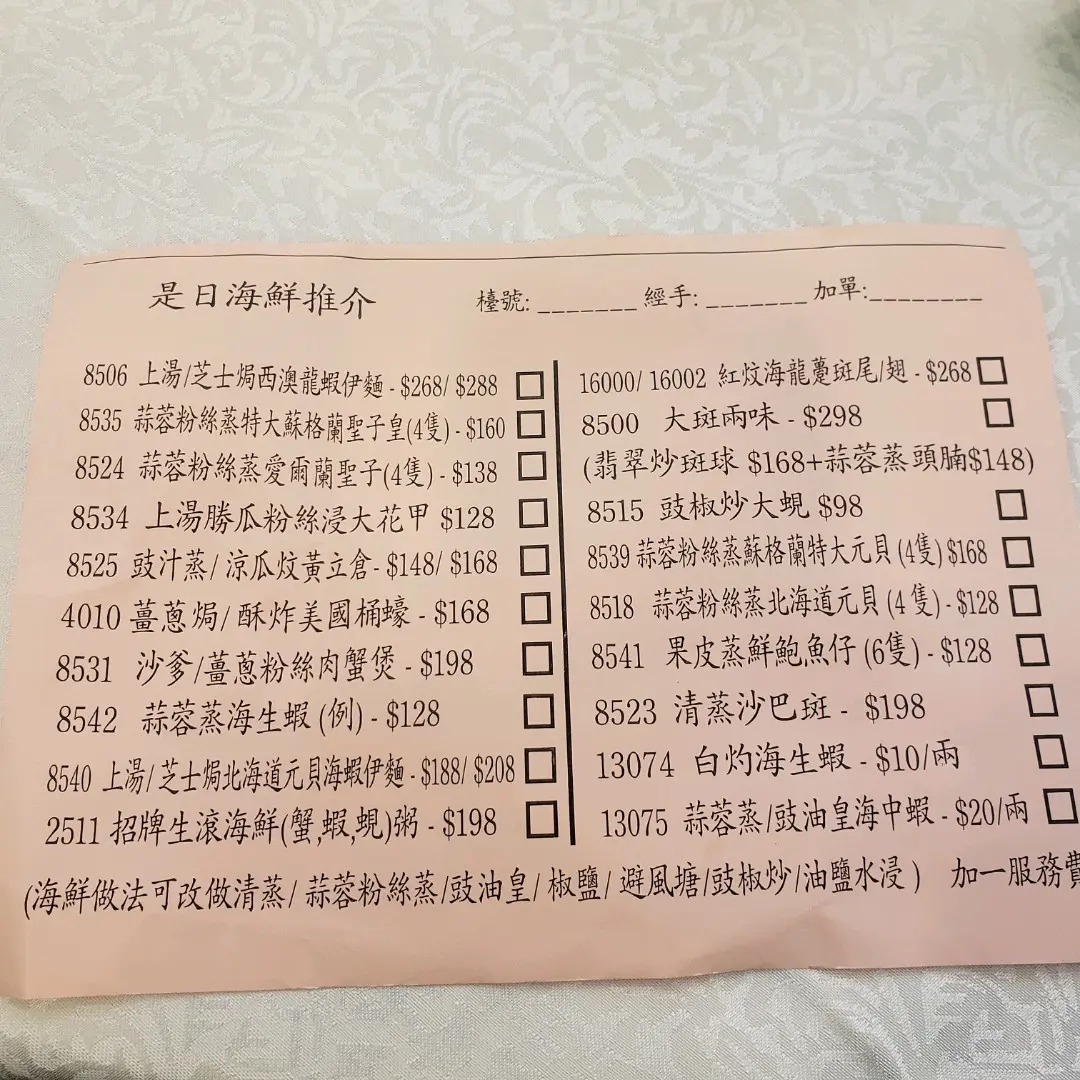 是日海鮮推介 檯號: _______ 經手: _______ 加單:________
8506 上湯/芝士焗西澳龍蝦伊麵 - $268/ $288 □
8535 蒜蓉粉絲蒸特大蘇格蘭聖子皇(4隻) - $160 □
8524 蒜蓉粉絲蒸愛爾蘭聖子(4隻) - $138 □
8534 上湯勝瓜粉絲浸大花甲 $128 □
8525 豉汁蒸/ 涼瓜炆黃立倉- $148/ $168 □
4010 薑蔥焗/ 酥炸美國桶蠔 - $168 □
8531 沙爹/薑蔥粉絲肉蟹煲 - $198 □
8542 蒜蓉蒸海生蝦 (例) - $128 □
8540 上湯/ 芝士焗北海道元貝海蝦伊麵 - $188/ $208 □
2511 招牌生滾海鮮(蟹,蝦,蜆)粥 - $198 □
16000/ 16002 紅炆海龍躉斑尾/翅 - $268 □
8500 大斑兩味 - $298 □
(翡翠炒斑球 $168+蒜蓉蒸頭腩$148)
8515 豉椒炒大蜆 $98 □
8539 蒜蓉粉絲蒸蘇格蘭特大元貝 (4隻) $168 □
8518 蒜蓉粉絲蒸北海道元貝 (4 隻) - $128 □
8541 果皮蒸鮮鮑魚仔 (6隻) - $128 □
8523 清蒸沙巴斑 - $198 □
13074 白灼海生蝦 - $10/兩 □
13075 蒜蓉蒸/豉油皇海中蝦 - $20/兩 □
(海鮮做法可改做清蒸/ 蒜蓉粉絲蒸/豉油皇/ 椒鹽/ 避風塘/豉椒炒/油鹽水浸 ) 加一服務費